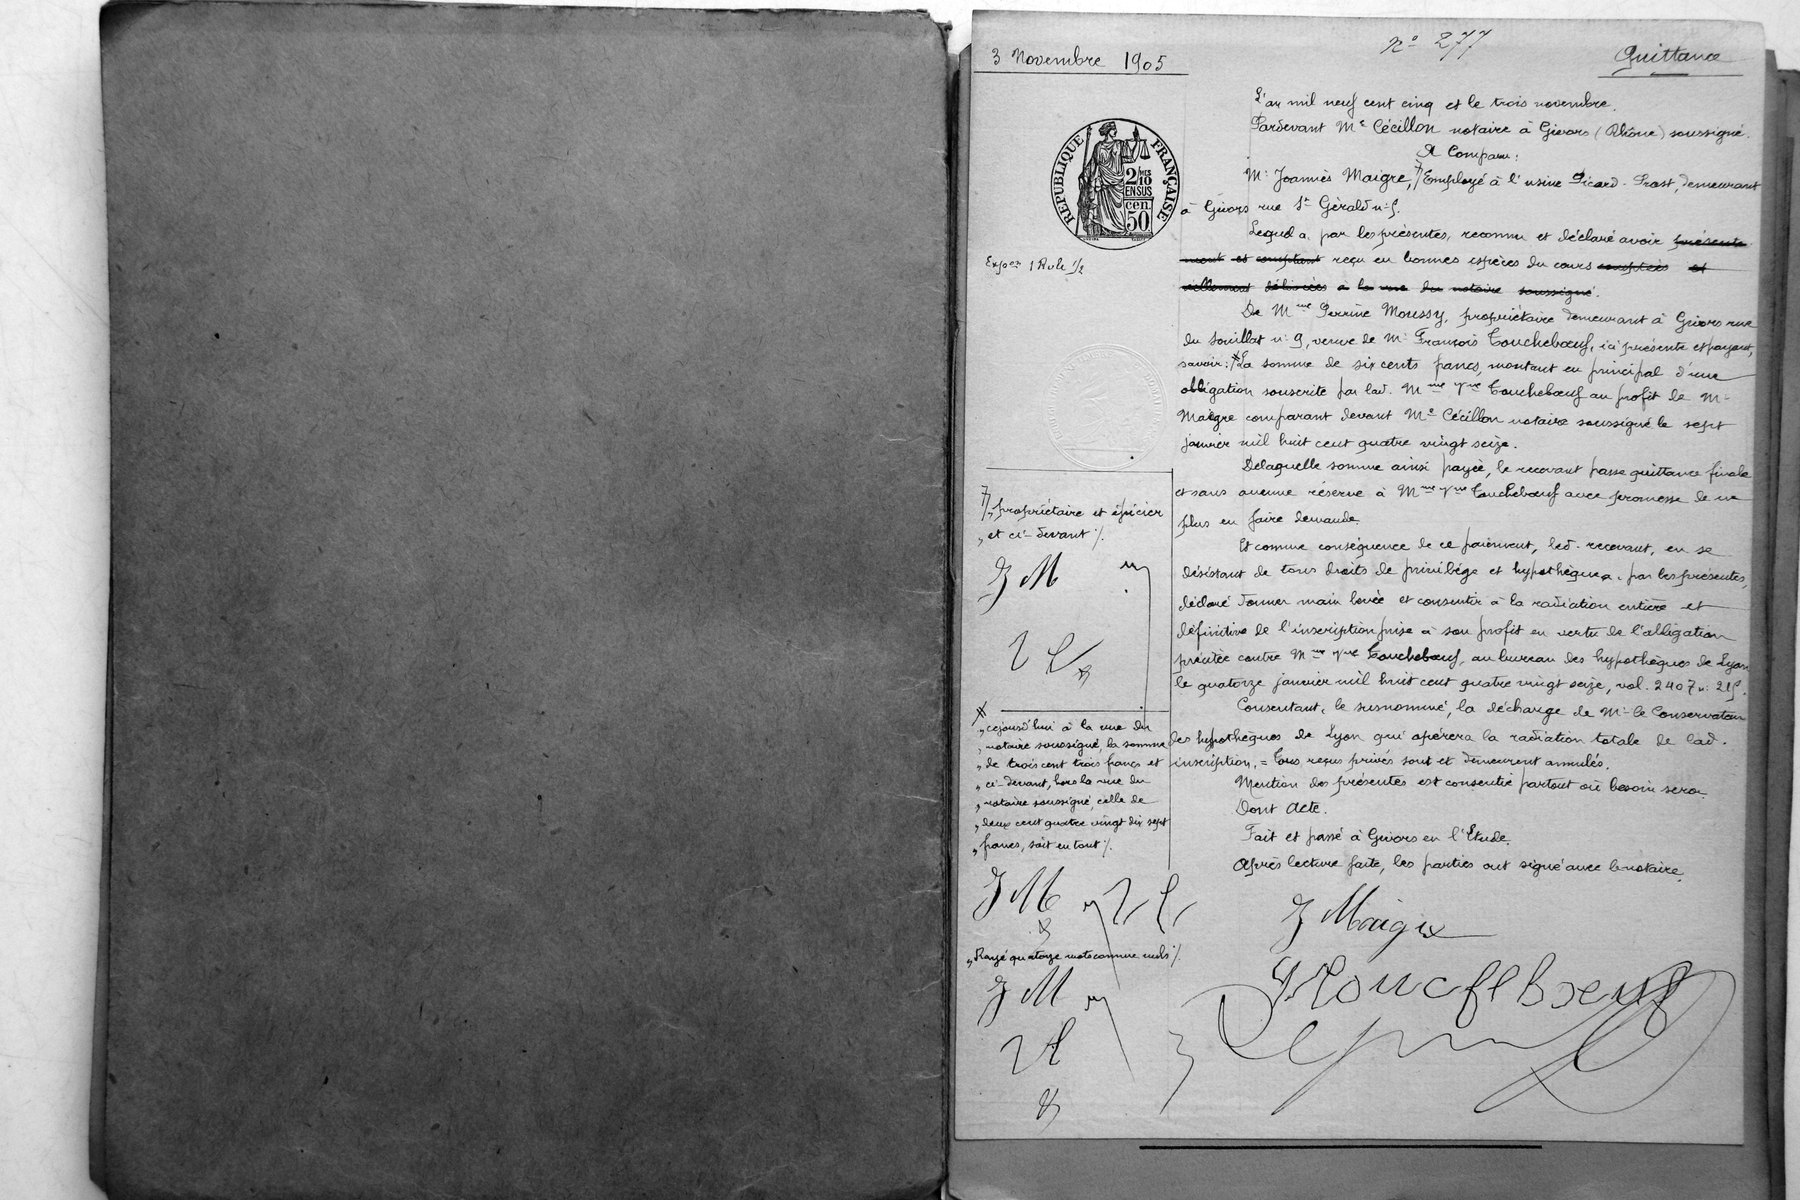 3 Novembre 1905
N° 277
Quittance
L'an mil neuf cent cinq et le trois novembre.
Pardevant Me Cécillon notaire à Givors (Rhône) soussigné.
A Comparu:
Mr Joannès Maigre, Employé à l'usine Picard-Prost, demeurant
à Givors rue St Gérald n°5.
Lequel a, par les présentes, reconnu et déclaré avoir présente
ment et comptant reçu en bonnes espèces du cours comptées et
réellement délivrées à la vue du notaire soussigné.
De Mme Perrine Moussy, propriétaire demeurant à Givors rue
du Souillat n° 9, veuve de Mr François Toucheboeuf, ici présente et payant,
savoir: La somme de six cents francs, montant en principal d'une
obligation souscrite par lad. Mme Vve Toucheboeuf au profit de Mr
Maigre comparant devant Me Cécillon notaire soussigné le sept
janvier mil huit cent quatre vingt seize.
Delaquelle somme ainsi payée, le recevant passe quittance finale
et sans aucune réserve à Mme Vve Toucheboeuf avec promesse de ne
plus en faire demande.
Et comme conséquence de ce paiement, led. recevant, en se
désistant de tous droits de privilège et hypothèque a, par les présentes,
déclaré donner main levée et consentir à la radiation entière et
définitive de l'inscription prise à son profit en vertu de l'obligation
précitée contre Mme Vve Toucheboeuf, au bureau des hypothèques de Lyon
le quatorze janvier mil huit cent quatre vingt seize, vol. 2407 n: 215.
Consentant, le susnommé, la décharge de Mr le Conservateur
des hypothèques de Lyon qui opérera la radiation totale de lad.
inscription. = Tous reçus privés sont et demeurent annulés.
Mention des présentes est consentie partout où besoin sera.
Dont Acte.
Fait et passé à Givors en l'Etude.
Après lecture faite, les parties ont signé avec le notaire.
J Maigre
RÉPUBLIQUE FRANÇAISE
2/10 MES
EN SUS
cen.
50
Expon 1 Role 1/2
propriétaire et épicier
et ci-devant /.
J M
cejourd'hui à la vue du
notaire soussigné, la somme
de trois cent trois francs et
ci-devant, hors la vue du
notaire soussigné, celle de
deux cent quatre vingt dix sept
francs, soit en tout /.
J M
Rayé quatorze mots comme nuls /.
J M